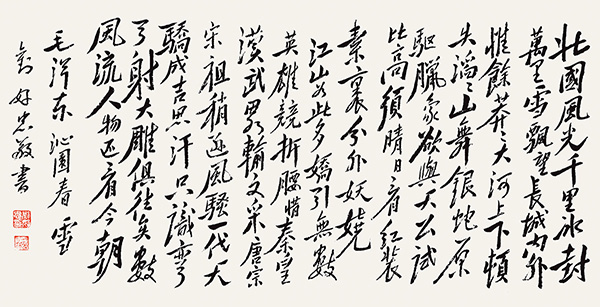 北國風光千里冰封
萬里雪飄望長城內外
惟餘莽〻大河上下頓
失滔〻山舞銀蛇原
驅臘象欲與天公試
比高須晴日看紅裝
素裹分外妖嬈
江山如此多嬌引無數
英雄競折腰惜秦皇
漢武畧輸文采唐宗
宋祖稍遜風騷一代天
驕成吉思汗只識彎
弓射大雕俱往矣數
風流人物还看今朝
毛澤东 沁園春 雪
好忠敬書